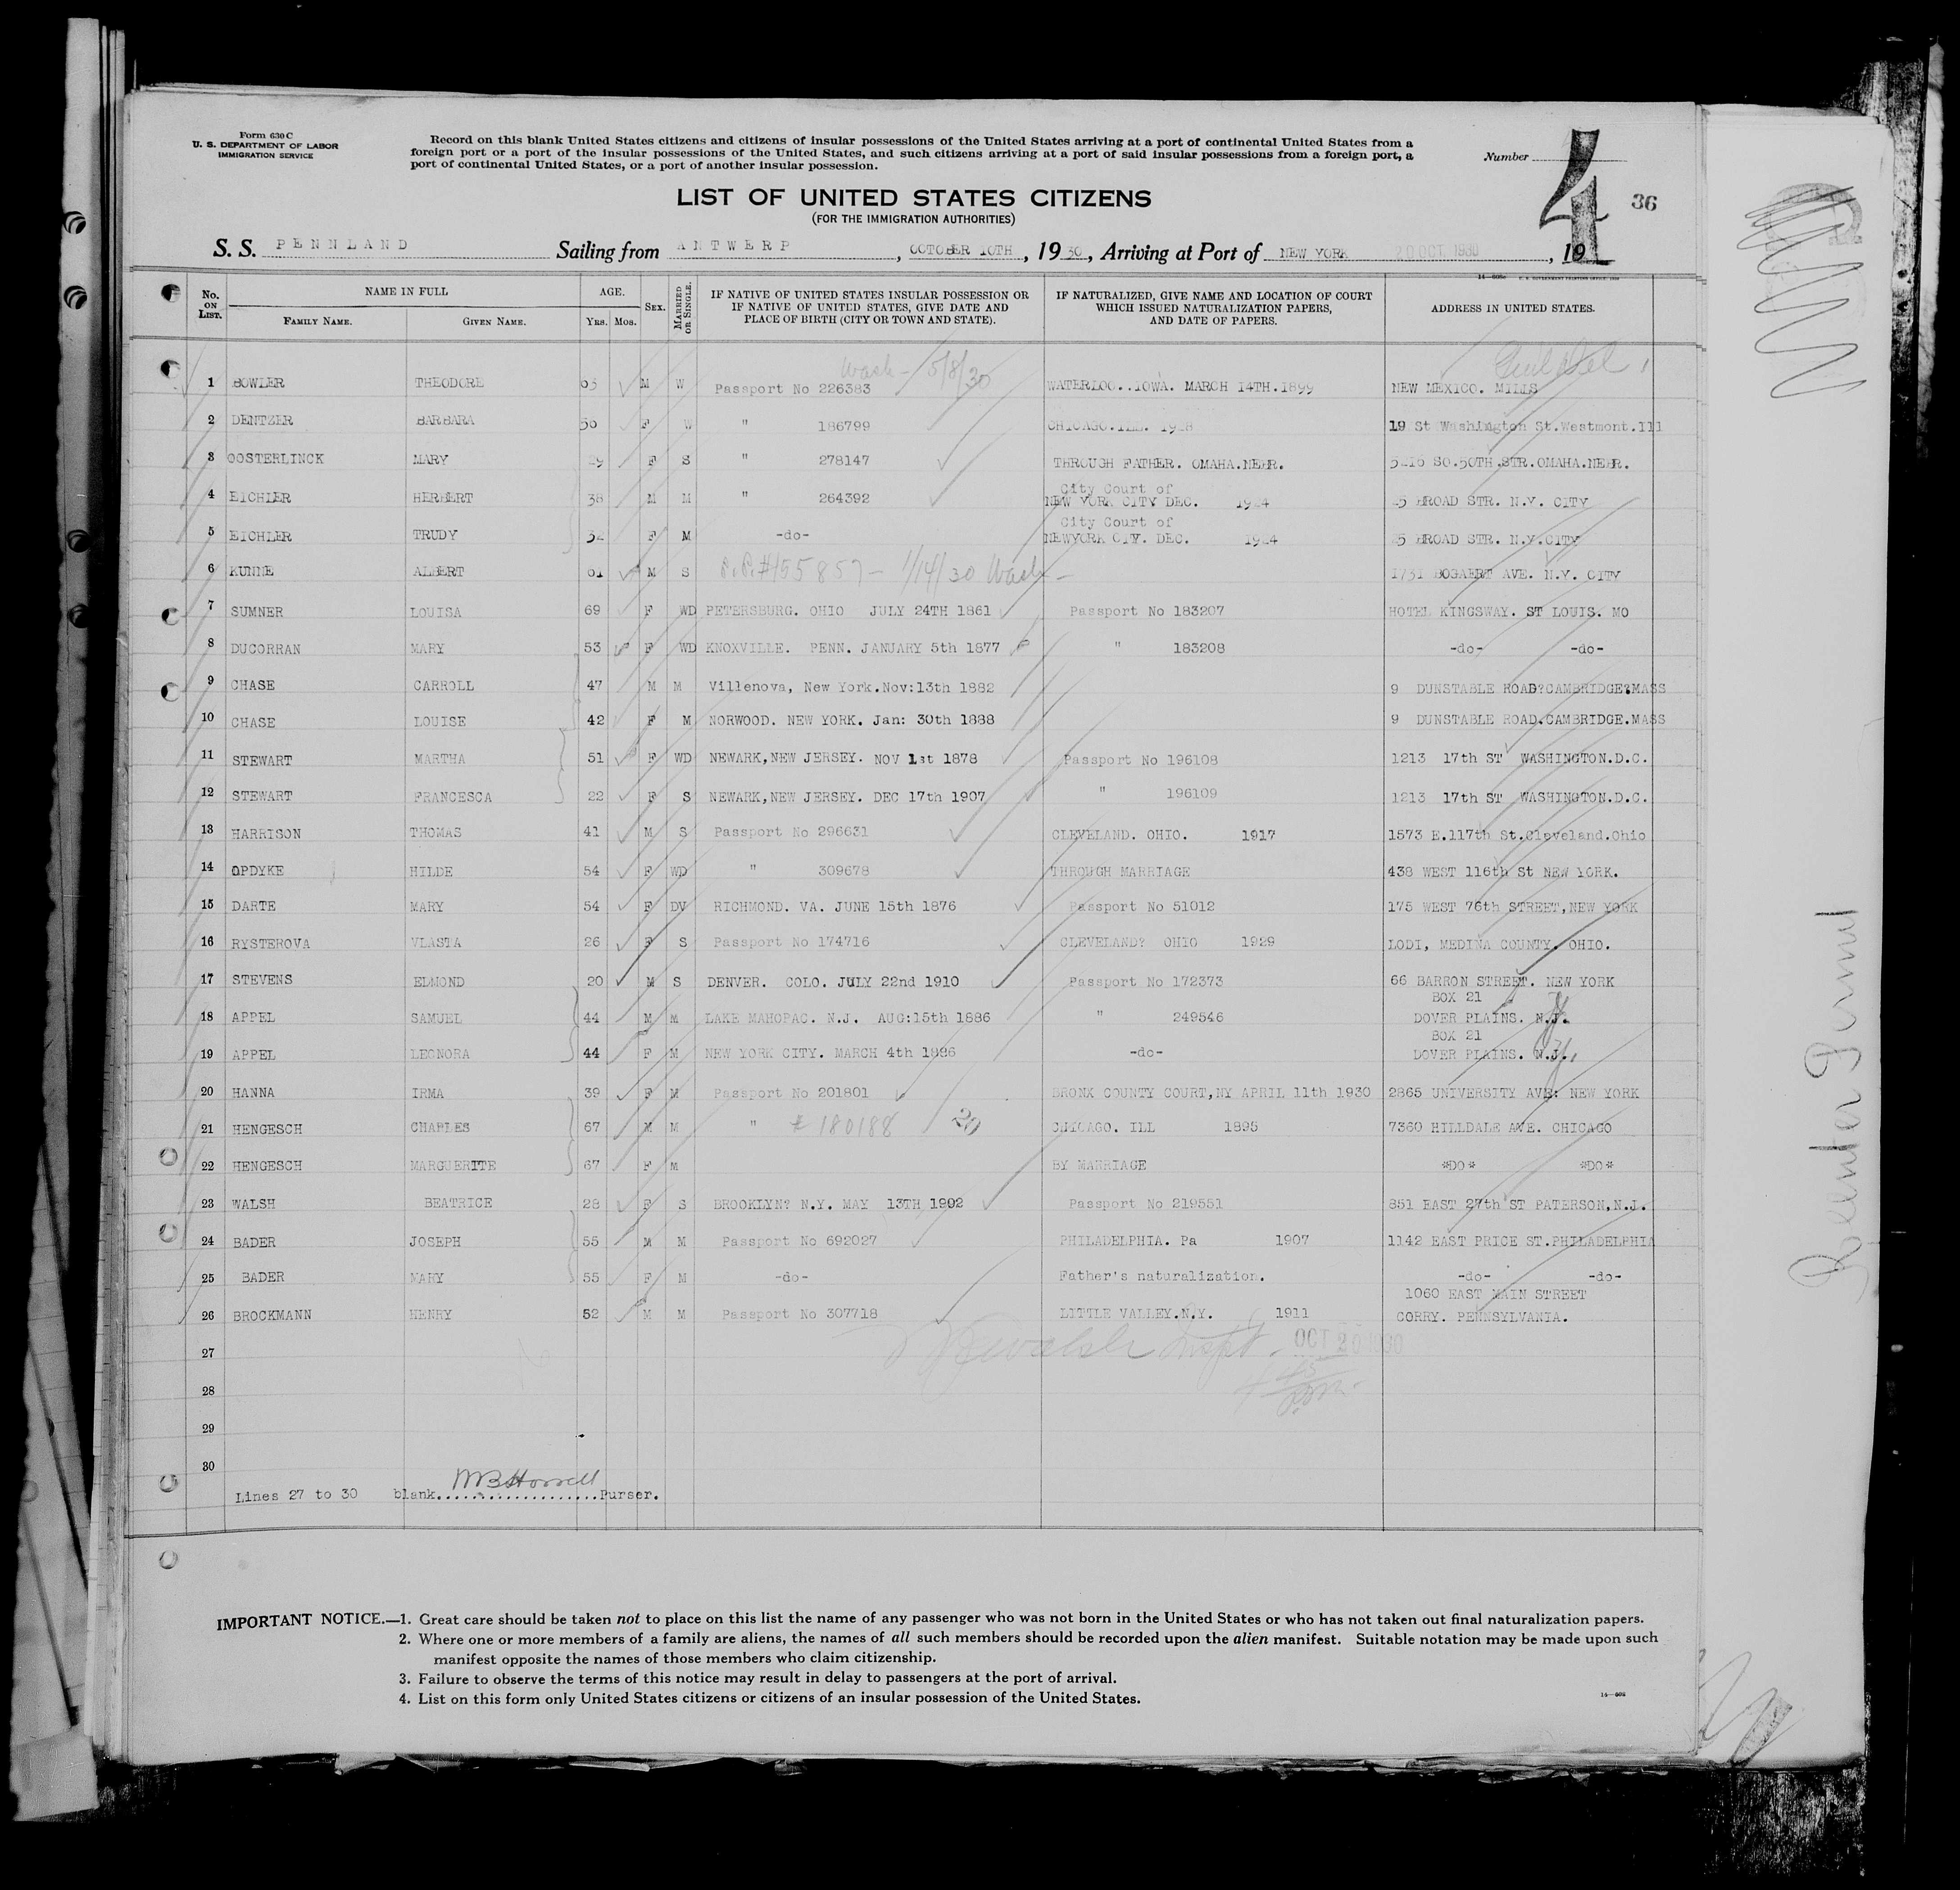 Form 630 C
U. S. DEPARTMENT OF LABOR
IMMIGRATION SERVICE
Record on this blank United States citizens and citizens of insular possessions of the United States arriving at a port of continental United States from a
foreign port or a port of the insular possessions of the United States, and such citizens arriving at a port of said insular possessions from a foreign port, a
port of continental United States, or a port of another insular possession.
Number 4
36
LIST OF UNITED STATES CITIZENS
(FOR THE IMMIGRATION AUTHORITIES)
S. S. PENNLAND Sailing from ANTWERP, OCTOBER 10TH, 19 30, Arriving at Port of NEW YORK 20 OCT 1930, 19
No. ON LIST. NAME IN FULL FAMILY NAME. GIVEN NAME. AGE. YRS. MOS. SEX. MARRIED OR SINGLE. IF NATIVE OF UNITED STATES INSULAR POSSESSION OR IF NATIVE OF UNITED STATES, GIVE DATE AND PLACE OF BIRTH (CITY OR TOWN AND STATE). IF NATURALIZED, GIVE NAME AND LOCATION OF COURT WHICH ISSUED NATURALIZATION PAPERS, AND DATE OF PAPERS. ADDRESS IN UNITED STATES.
Wash - 5/8/30
1 BOWLER THEODORE 63 M W Passport No 226383 WATERLOO..IOWA. MARCH 14TH.1899 NEW MEXICO. MILLS
2 DENTZER BARBARA 50 F W " 186799 CHICAGO.ILL. 1928 19 St Washington St.Westmont.Ill
3 OOSTERLINCK MARY 29 F S " 278147 THROUGH FATHER. OMAHA.NEBR. 5216 SO.50TH.STR.OMAHA.NEBR.
4 EICHLER HERBERT 38 M M " 264392 City Court of NEW YORK CITY DEC. 1924 25 BROAD STR. N.Y. CITY
5 EICHLER TRUDY 32 F M -do- City Court of NEWYORK CITY. DEC. 1924 25 BROAD STR. N.Y.CITY
6 KUNNE ALBERT 61 M S P.P.#155857 - 1/14/30 Wash - 1731 BOGAERT AVE. N.Y. CITY
7 SUMNER LOUISA 69 F WD PETERSBURG. OHIO JULY 24TH 1861 Passport No 183207 HOTEL KINGSWAY. ST LOUIS. MO
8 DUCORRAN MARY 53 F WD KNOXVILLE. PENN. JANUARY 5th 1877 " 183208 -do- -do-
9 CHASE CARROLL 47 M M Villenova, New York.Nov:13th 1882 9 DUNSTABLE ROAD?CAMBRIDGE?MASS
10 CHASE LOUISE 42 F M NORWOOD. NEW YORK. Jan: 30th 1888 9 DUNSTABLE ROAD.CAMBRIDGE.MASS
11 STEWART MARTHA 51 F WD NEWARK,NEW JERSEY. NOV 1st 1878 Passport No 196108 1213 17th ST WASHINGTON.D.C.
12 STEWART FRANCESCA 22 F S NEWARK,NEW JERSEY. DEC 17th 1907 " 196109 1213 17th ST WASHINGTON.D.C.
13 HARRISON THOMAS 41 M S Passport No 296631 CLEVELAND. OHIO. 1917 1573 E.117th St.Cleveland.Ohio
14 OPDYKE HILDE 54 F WD " 309678 THROUGH MARRIAGE 438 WEST 116th St NEW YORK.
15 DARTE MARY 54 F DV RICHMOND. VA. JUNE 15th 1876 Passport No 51012 175 WEST 76th STREET,NEW YORK
16 RYSTEROVA VLASTA 26 F S Passport No 174716 CLEVELAND? OHIO 1929 LODI, MEDINA COUNTY. OHIO.
17 STEVENS EDMOND 20 M S DENVER. COLO. JULY 22nd 1910 Passport No 172373 66 BARRON STREET. NEW YORK
18 APPEL SAMUEL 44 M M LAKE MAHOPAC. N.J. AUG:15th 1886 " 249546 BOX 21 DOVER PLAINS. N.J.
19 APPEL LEONORA 44 F M NEW YORK CITY. MARCH 4th 1886 -do- BOX 21 DOVER PLAINS. N.J.
20 HANNA IRMA 39 F M Passport No 201801 BRONX COUNTY COURT,NY APRIL 11th 1930 2865 UNIVERSITY AVE: NEW YORK
21 HENGESCH CHARLES 67 M M " # 180188 20 CHICAGO. ILL 1895 7360 HILLDALE AVE. CHICAGO
22 HENGESCH MARGUERITE 67 F M BY MARRIAGE *DO* *DO*
23 WALSH BEATRICE 28 F S BROOKLYN? N.Y. MAY 13TH 1902 Passport No 219551 851 EAST 27th ST PATERSON,N.J.
24 BADER JOSEPH 55 M M Passport No 692027 PHILADELPHIA. Pa 1907 1142 EAST PRICE ST.PHILADELPHIA
25 BADER MARY 55 F M -do- Father's naturalization. -do- -do-
26 BROCKMANN HENRY 52 M M Passport No 307718 LITTLE VALLEY.N.Y. 1911 1060 EAST MAIN STREET CORRY. PENNSYLVANIA.
27 Walsh Inspt. OCT 20 1930
28
29
30
Lines 27 to 30 blank...................Purser.
IMPORTANT NOTICE.—1. Great care should be taken not to place on this list the name of any passenger who was not born in the United States or who has not taken out final naturalization papers.
2. Where one or more members of a family are aliens, the names of all such members should be recorded upon the alien manifest. Suitable notation may be made upon such
manifest opposite the names of those members who claim citizenship.
3. Failure to observe the terms of this notice may result in delay to passengers at the port of arrival.
4. List on this form only United States citizens or citizens of an insular possession of the United States.